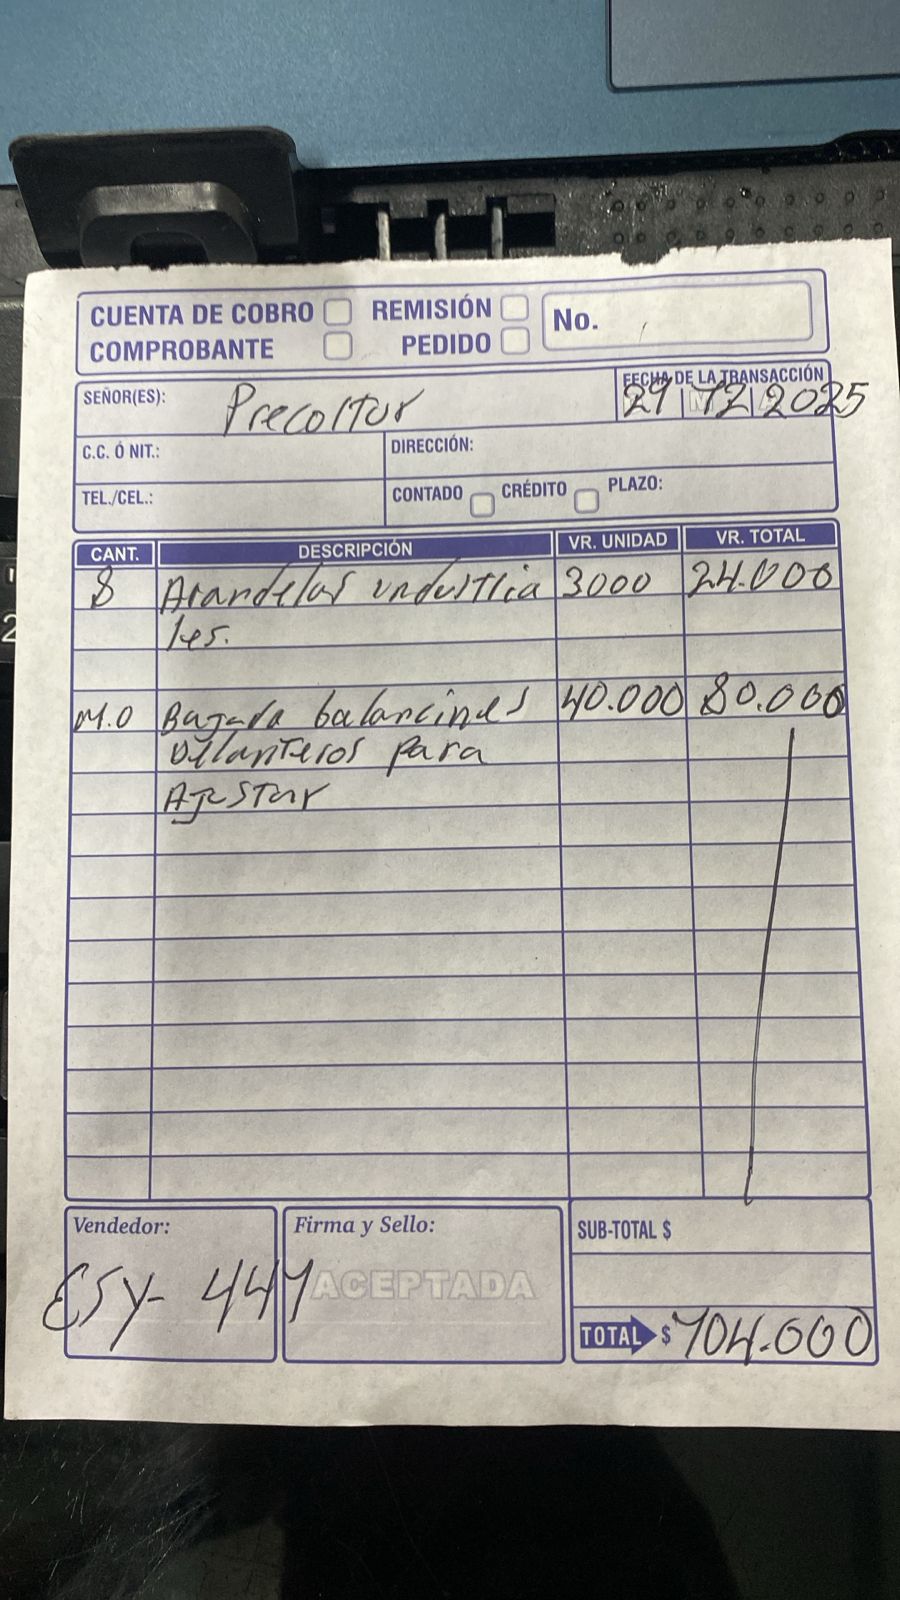 CUENTA DE COBRO REMISIÓN No.
COMPROBANTE PEDIDO
SEÑOR(ES): Precoltur FECHA DE LA TRANSACCIÓN
29 12 2025
C.C. Ó NIT.: DIRECCIÓN:
TEL./CEL.: CONTADO CRÉDITO PLAZO:
CANT. DESCRIPCIÓN VR. UNIDAD VR. TOTAL
8 Arandelas industria 3000 24.000
les.
M.O Bajada balancines 40.000 80.000
Delanteros para
Ajustar
Vendedor: Firma y Sello: SUB-TOTAL $
ESY- 441 ACEPTADA
TOTAL $ 104.000